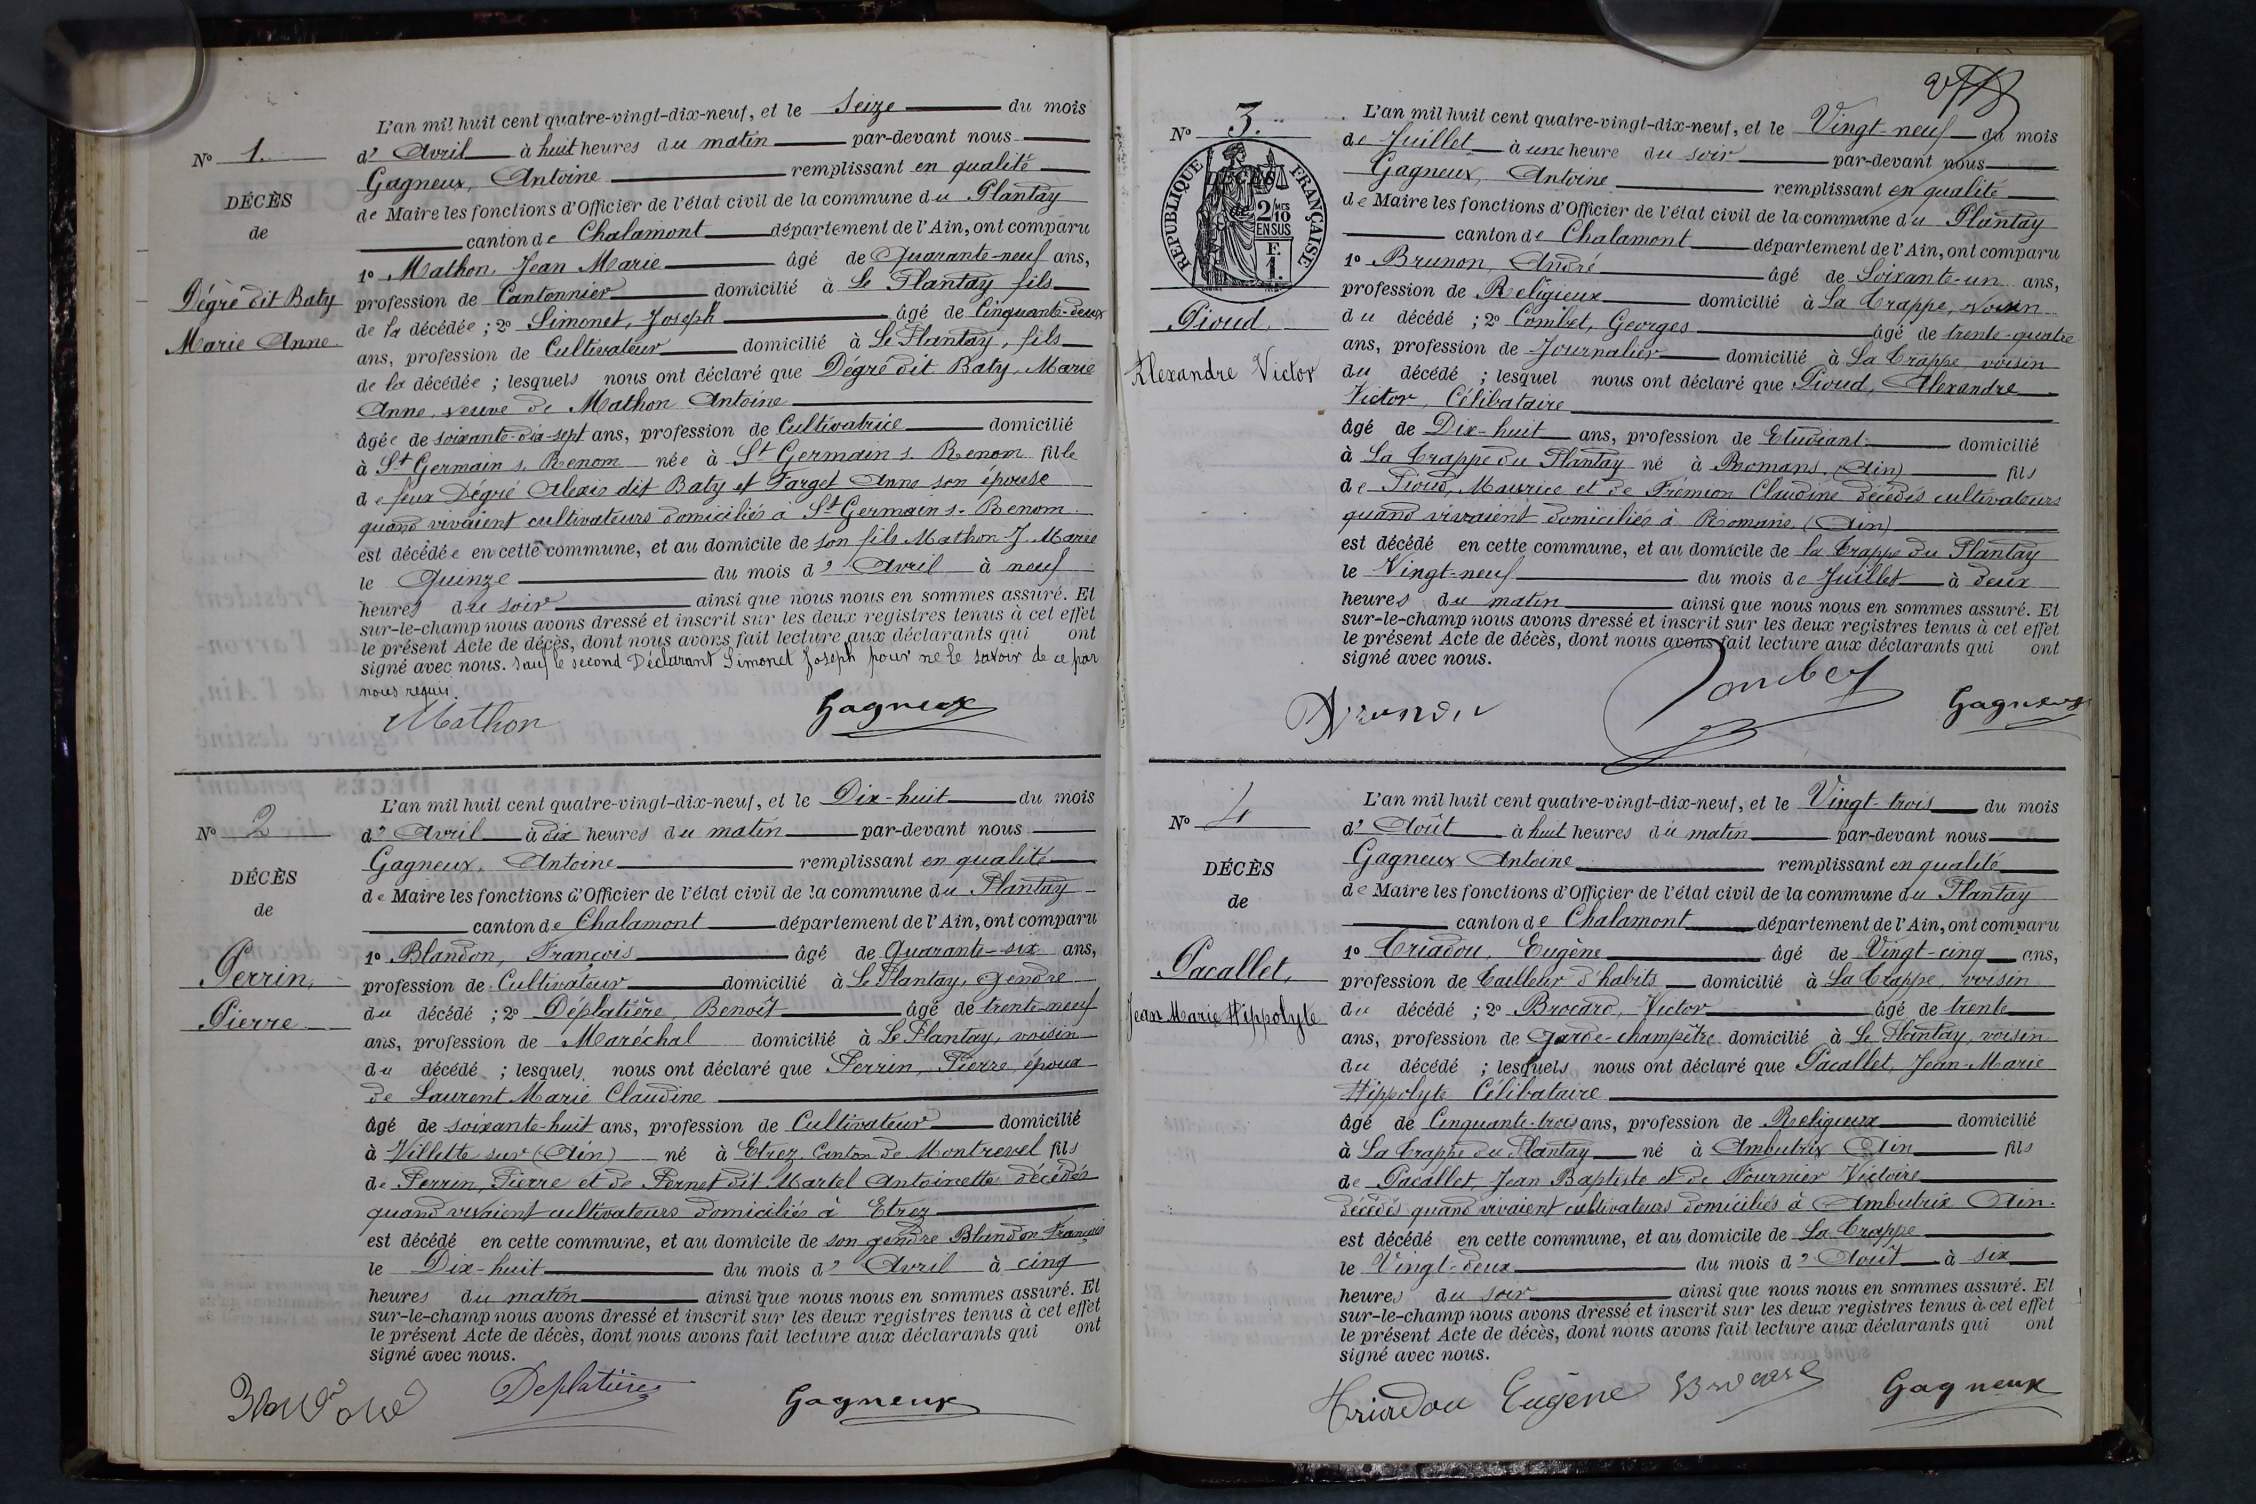 L'an mil huit cent quatre-vingt-dix-neuf, et le Seize du mois
N° 1.
d' Avril à huit heures du matin par-devant nous
Gagneux, Antoine remplissant en qualité
DÉCÈS
de Maire les fonctions d'Officier de l'état civil de la commune du Plantay
de
canton de Chalamont département de l'Ain, ont comparu
1° Mathon, Jean Marie âgé de Quarante-neuf ans,
Dégré dit Baty
profession de Cantonnier domicilié à Le Plantay fils
de la décédée ; 2° Simonet, Joseph âgé de Cinquante-deux
Marie Anne
ans, profession de Cultivateur domicilié à Le Plantay, fils
de la décédée ; lesquels nous ont déclaré que Dégré dit Baty, Marie
Anne, veuve de Mathon Antoine
âgée de soixante-dix-sept ans, profession de Cultivatrice domicilié
à St Germain s. Renom née à St Germain s. Renom fille
de feux Dégré Alexis dit Baty et Farget Anne son épouse
quand vivaient cultivateurs domiciliés à St Germain s. Renom
est décédée en cette commune, et au domicile de son fils Mathon J. Marie
le Quinze du mois d' Avril à neuf
heures du soir ainsi que nous nous en sommes assuré. Et
sur-le-champ nous avons dressé et inscrit sur les deux registres tenus à cet effet
le présent Acte de décès, dont nous avons fait lecture aux déclarants qui ont
signé avec nous. sauf le second Déclarant Simonet Joseph pour ne le savoir de ce par
nous requis.
Mathon Gagneux
L'an mil huit cent quatre-vingt-dix-neuf, et le Dix-huit du mois
N° 2
d' Avril à dix heures du matin par-devant nous
Gagneux, Antoine remplissant en qualité
DÉCÈS
de Maire les fonctions d'Officier de l'état civil de la commune du Plantay
de
canton de Chalamont département de l'Ain, ont comparu
1° Blandon, François âgé de Quarante-six ans,
Perrin,
profession de Cultivateur domicilié à Le Plantay, Gendre
du décédé ; 2° Déplatière, Benoît âgé de trente-neuf
Pierre
ans, profession de Maréchal domicilié à Le Plantay, voisin
du décédé ; lesquels nous ont déclaré que Perrin, Pierre, époux
de Laurent Marie Claudine
âgé de soixante-huit ans, profession de Cultivateur domicilié
à Villette sur (Ain) né à Etrez Canton de Montrevel fils
de Perrin, Pierre et de Pernet dit Martel Antoinette décédés
quand vivaient cultivateurs domiciliés à Etrez
est décédé en cette commune, et au domicile de son gendre Blandon François
le Dix-huit du mois d' Avril à cinq
heures du matin ainsi que nous nous en sommes assuré. Et
sur-le-champ nous avons dressé et inscrit sur les deux registres tenus à cet effet
le présent Acte de décès, dont nous avons fait lecture aux déclarants qui ont
signé avec nous.
Deplatière Gagneux
L'an mil huit cent quatre-vingt-dix-neuf, et le Vingt-neuf du mois
N° 3.
de Juillet à une heure du soir par-devant nous
Gagneux, Antoine remplissant en qualité
RÉPUBLIQUE FRANÇAISE
2/10 MES EN SUS
F. 1.
de Maire les fonctions d'Officier de l'état civil de la commune du Plantay
canton de Chalamont département de l'Ain, ont comparu
1° Brunon, André âgé de Soixante-un ans,
profession de Religieux domicilié à La Trappe, voisin
Pioud
du décédé ; 2° Combet, Georges âgé de trente-quatre
ans, profession de Journalier domicilié à La Trappe, voisin
Alexandre Victor
du décédé ; lesquel nous ont déclaré que Pioud, Alexandre
Victor, Célibataire
âgé de Dix-huit ans, profession de Etudiant domicilié
à La Trappe du Plantay né à Romans (Ain) fils
de Pioud, Maurice et de Frémion Claudine décédés cultivateurs
quand vivaient domiciliés à Romans (Ain)
est décédé en cette commune, et au domicile de la Trappe du Plantay
le Vingt-neuf du mois de Juillet à deux
heures du matin ainsi que nous nous en sommes assuré. Et
sur-le-champ nous avons dressé et inscrit sur les deux registres tenus à cet effet
le présent Acte de décès, dont nous avons fait lecture aux déclarants qui ont
signé avec nous.
Combet Gagneux
L'an mil huit cent quatre-vingt-dix-neuf, et le Vingt-trois du mois
N° 4
d' Août à huit heures du matin par-devant nous
Gagneux Antoine remplissant en qualité
DÉCÈS
de Maire les fonctions d'Officier de l'état civil de la commune du Plantay
de
canton de Chalamont département de l'Ain, ont comparu
1° Triadou, Eugène âgé de Vingt-cinq ans,
Pacallet,
profession de Tailleur d'habits domicilié à La Trappe, voisin
du décédé ; 2° Brocard, Victor âgé de trente
Jean Marie Hippolyte
ans, profession de Garde-champêtre domicilié à Le Plantay, voisin
du décédé ; lesquels nous ont déclaré que Pacallet, Jean-Marie
Hippolyte Célibataire
âgé de Cinquante-trois ans, profession de Religieux domicilié
à La Trappe du Plantay né à Ambutrix Ain fils
de Pacallet, Jean Baptiste et de Fournier Victoire
décédés quand vivaient cultivateurs domiciliés à Ambutrix Ain.
est décédé en cette commune, et au domicile de La Trappe
le Vingt-deux du mois d' Août à six
heures du soir ainsi que nous nous en sommes assuré. Et
sur-le-champ nous avons dressé et inscrit sur les deux registres tenus à cet effet
le présent Acte de décès, dont nous avons fait lecture aux déclarants qui ont
signé avec nous.
Triadou Eugène Brocard Gagneux